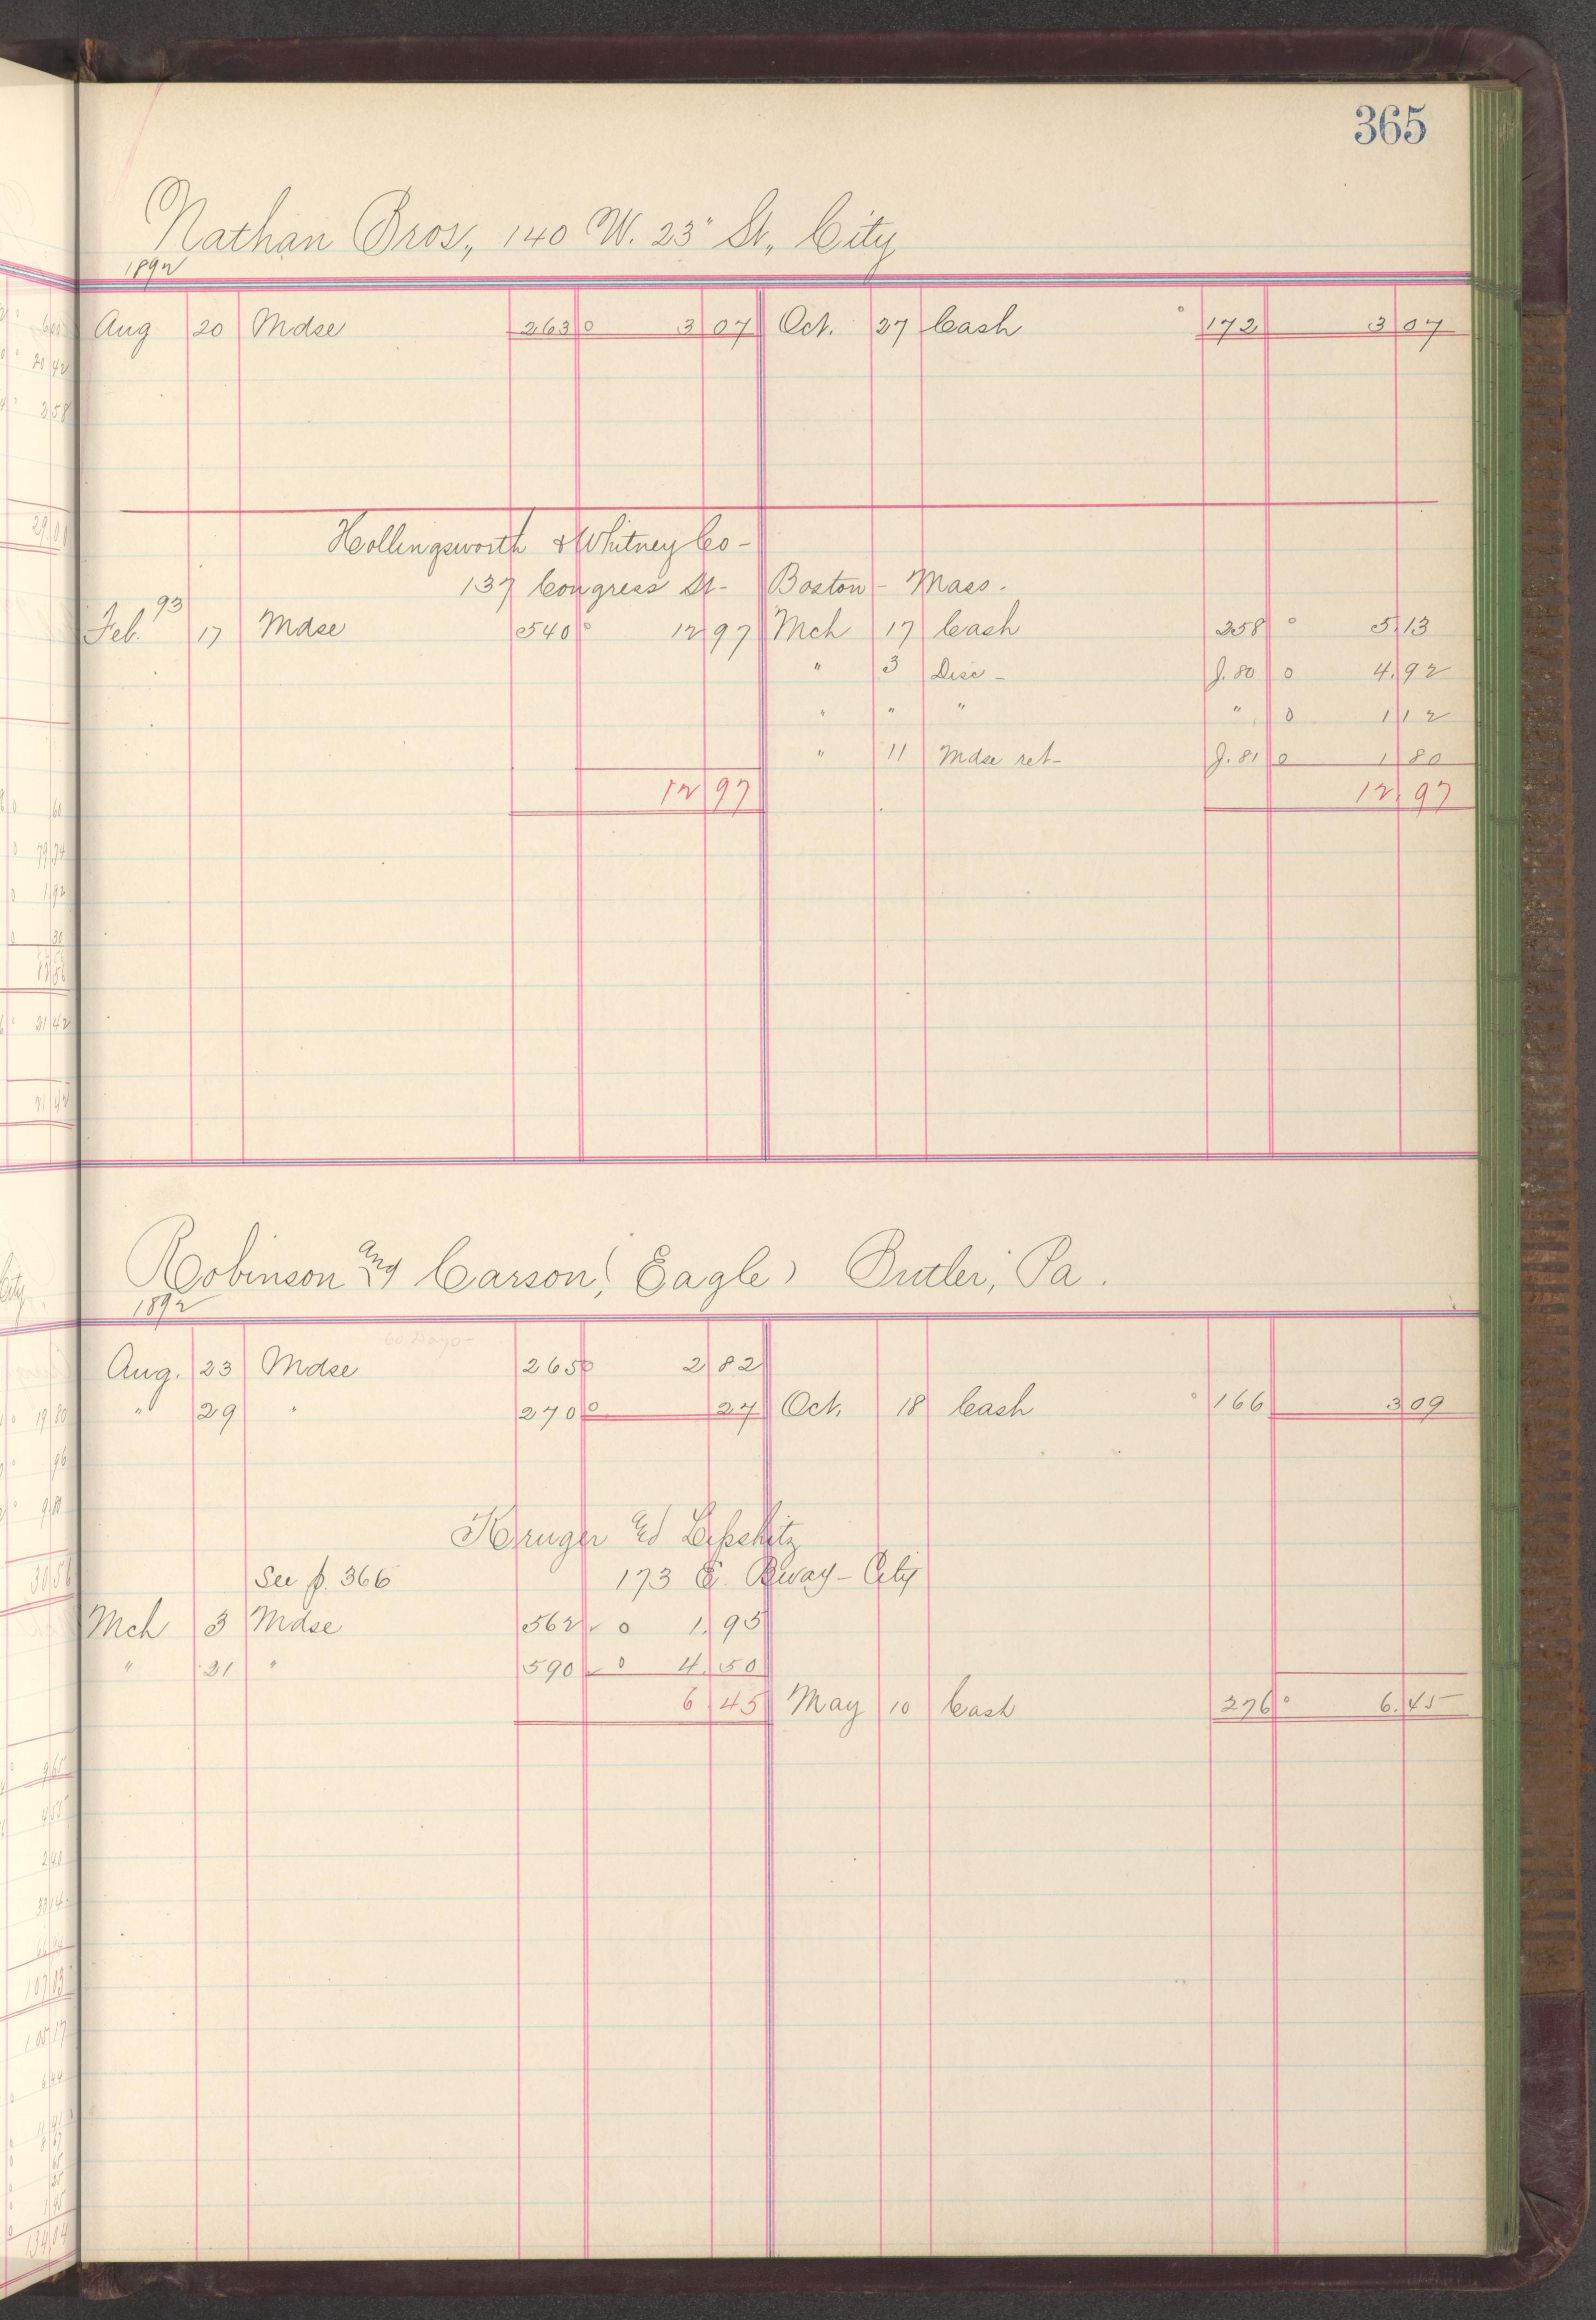 365
Nathan Bros., 140 W. 23" St., City
1892
Aug 20 Mdse 263 0 3 07 Oct. 27 Cash 172 3 07
Hollingsworth & Whitney Co-
137 Congress St- Boston- Mass.
Feb. 93 17 Mdse 540 0 12 97 Mch 17 Cash 258 0 5 13
" 3 Disc- J. 80 0 4.92
" " " " 0 1 12
" 11 Mdse ret- J. 81 0 1 80
12 97 12 97
Robinson and Carson, (Eagle) Butler, Pa.
1892
60 Days-
Aug. 23 Mdse 265 0 2 82
" 29 " 270 0 27 Oct. 18 Cash 166 3 09
Kruger &
See p. 366 173 E. Bway- City
Mch 3 Mdse 562 0 1.95
" 21 " 590 0 4.50
6.45 May 10 Cash 276 0 6.45